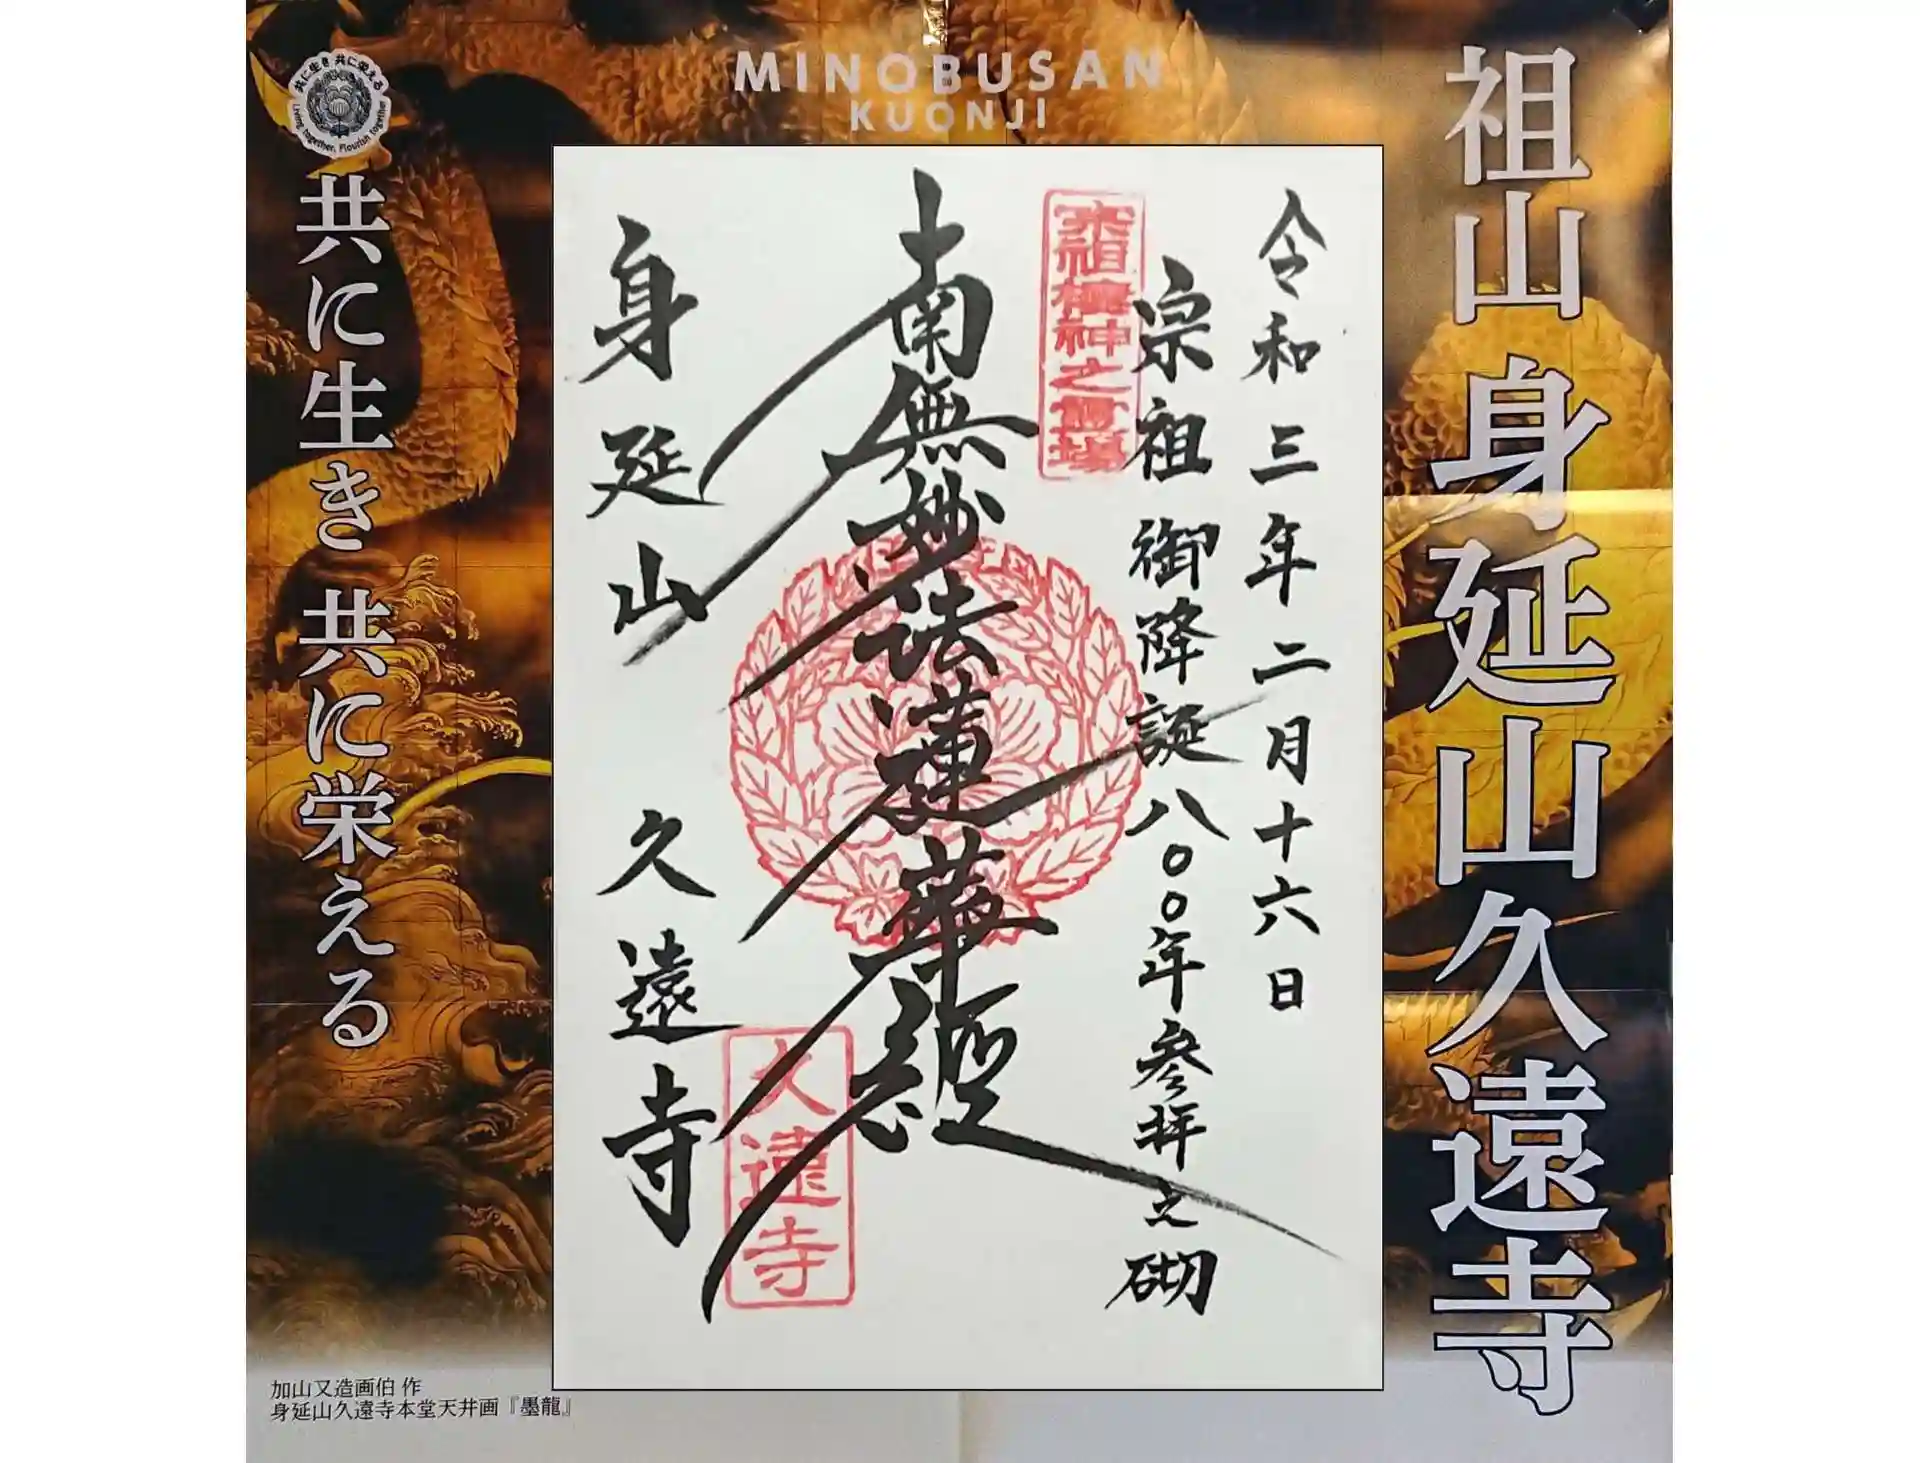 MINOBUSAN
KUONJI
祖山 身延山久遠寺
令和三年二月十六日
宗祖御降誕八〇〇年参拝之砌
宗祖棲神之霊場
南無妙法蓮華経
身延山 久遠寺
久遠寺
共に生き 共に栄える
Living Together, Flourish Together
共に生き 共に栄える
加山又造画伯 作
身延山久遠寺本堂天井画『墨龍』